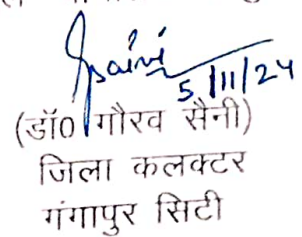 5/11/24
(डॉ0 गौरव सैनी)
जिला कलक्टर
गंगापुर सिटी